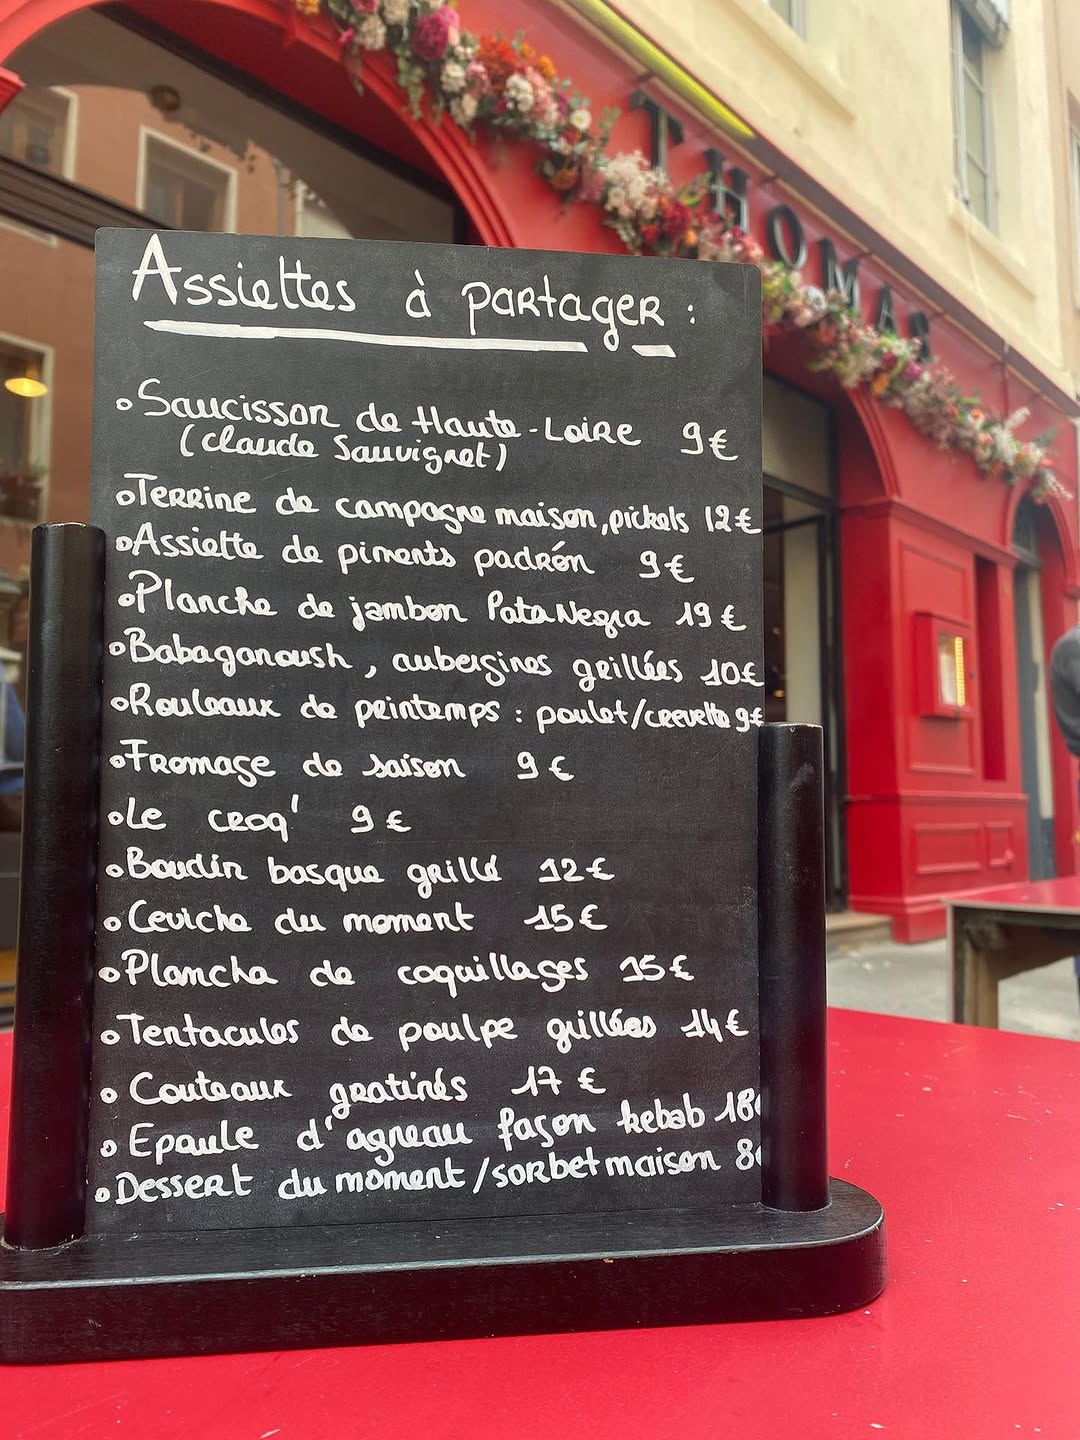 THOMAS
Assiettes à partager :
Saucisson de Haute-Loire 9€
(Claude Sauvignet)
Terrine de campagne maison, pickels 12€
Assiette de piments padrón 9€
Planche de jambon Pata Negra 19€
Babaganoush, aubergines grillées 10€
Rouleaux de peintemps : poulet/crevette 9€
Fromage de saison 9€
Le croq' 9€
Boudin basque grillé 12€
Ceviche du moment 15€
Plancha de coquillages 15€
Tentacules de poulpe grillées 14€
Couteaux gratinés 17€
Epaule d'agneau façon kebab 18€
Dessert du moment/sorbet maison 8€